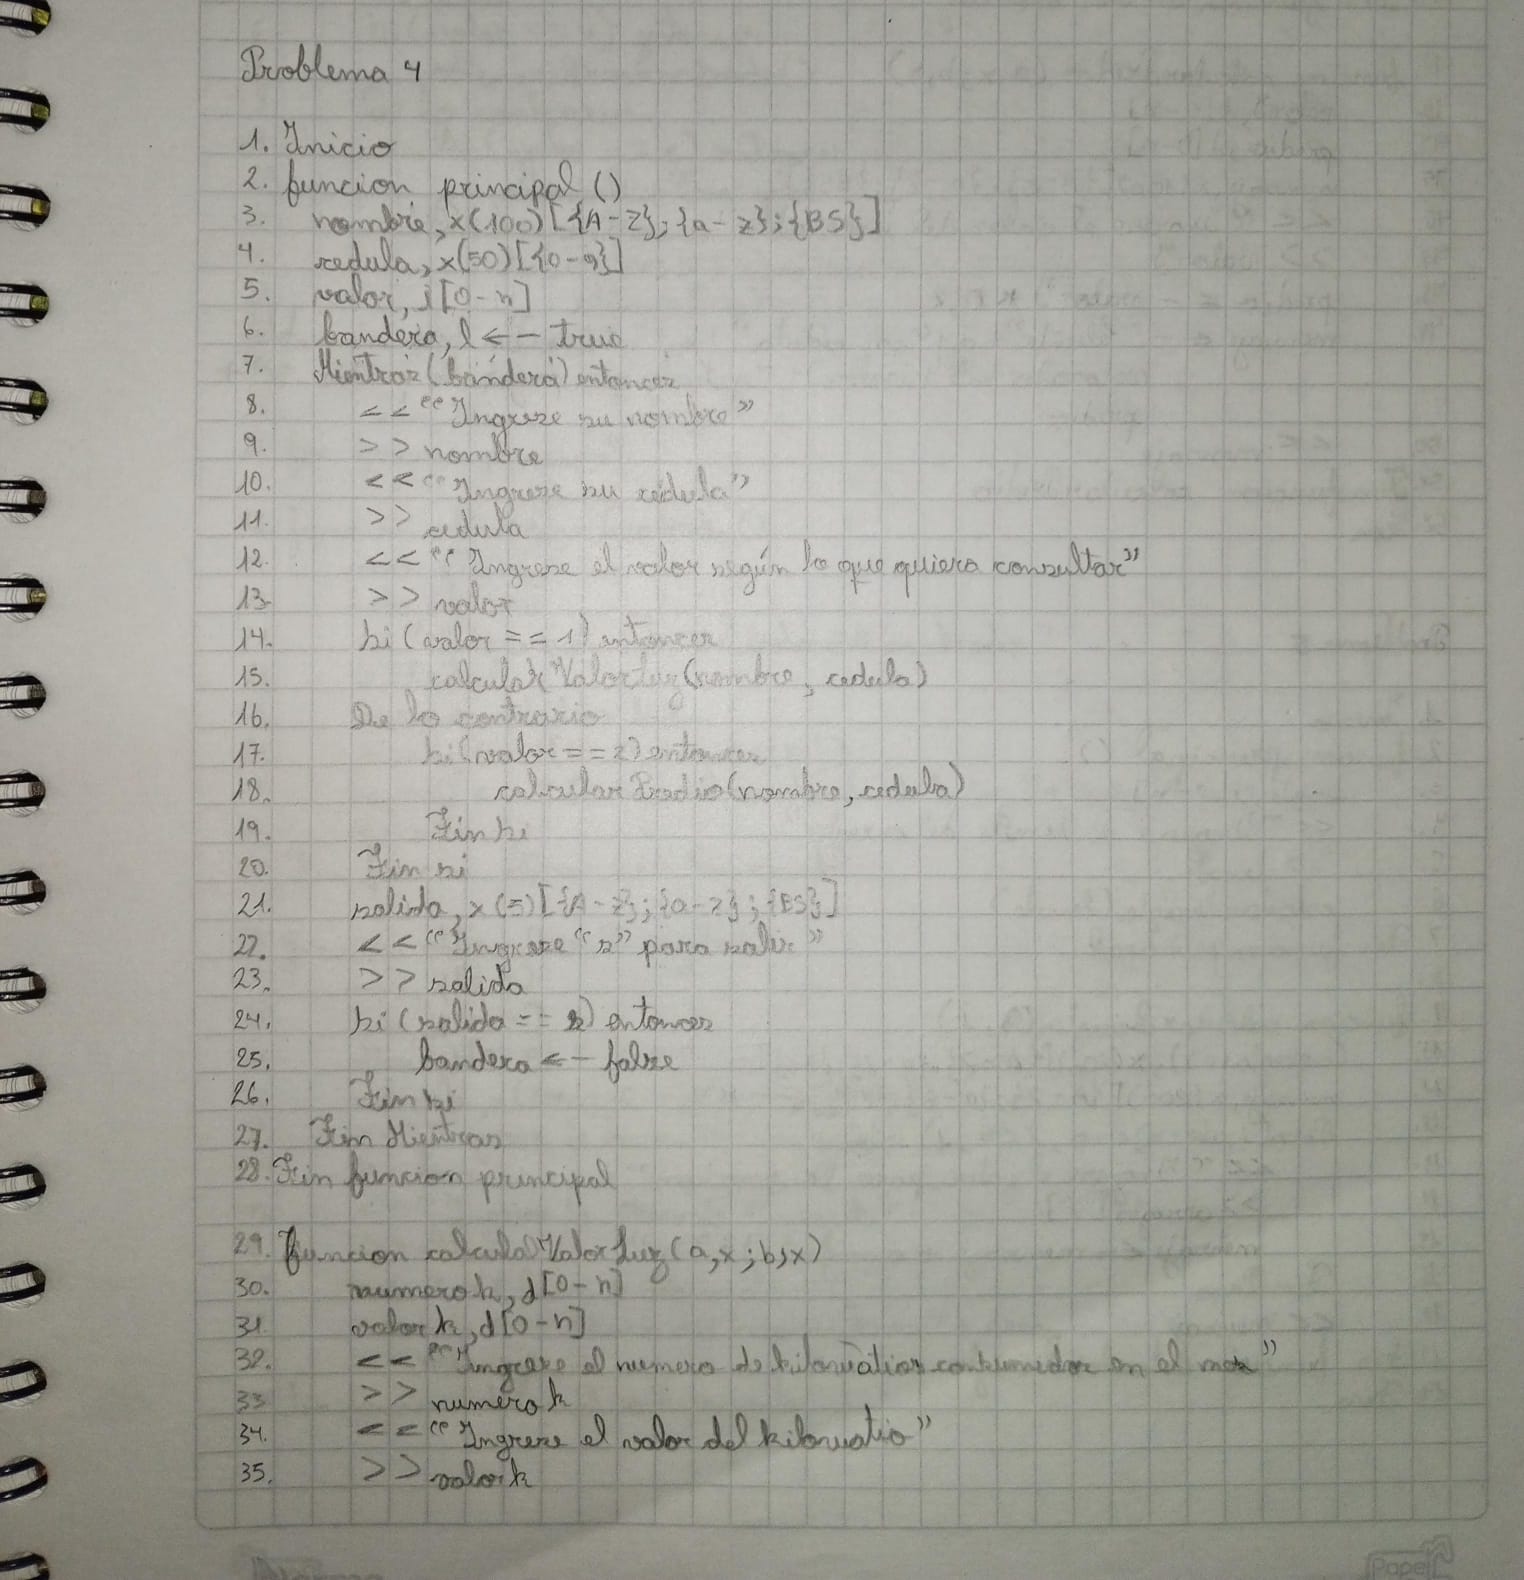 Problema 4
1. Inicio
2. funcion principal ()
3. nombre, x(100)[{A-Z};{a-z};{BS}]
4. cedula, x(50)[{0-9}]
5. valor, i[0-n]
6. bandera, l <- true
7. Mientras (bandera) entonces
8. << "Ingrese su nombre"
9. >> nombre
10. << "Ingrese su cédula"
11. >> cedula
12. << "Ingrese el valor según lo que quiera consultar"
13. >> valor
14. si (valor == 1) entonces
15. calcularValorLuz(nombre, cedula)
16. De lo contrario
17. si (valor == 2) entonces
18. calcularPredio(nombre, cedula)
19. Fin si
20. Fin si
21. salida, x(5)[{A-Z};{a-z};{BS}]
22. << "Ingrese "s" para salir"
23. >> salida
24. si (salida == s) entonces
25. bandera <- false
26. Fin si
27. Fin Mientras
28. Fin funcion principal
29. Funcion calculaValorLuz(a,x;b,x)
30. numerok, d[0-n]
31. valork, d[0-n]
32. << "Ingrese el numero de kilovatios consumidos en el mes"
33 >> numerok
34. << "Ingrese el valor del kilovatio"
35. >> valork
Papel